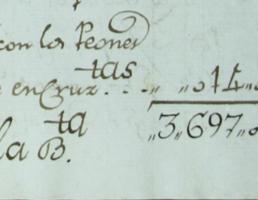 con los Peones
tas
en Cruz. . . „ „ 014„
ta „3„697„0
la B.